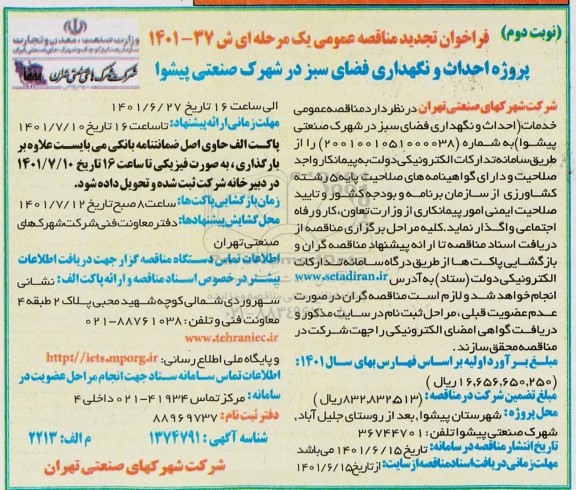 (نوبت دوم)
فراخوان تجدید مناقصه عمومی یک مرحله ای ش ۳۷-۱۴۰۱
پروژه احداث و نگهداری فضای سبز در شهرک صنعتی پیشوا
وزارت صنعت، معدن و تجارت
شرکت شهرکهای صنعتی تهران
شرکت شهرکهای صنعتی تهران در نظر دارد مناقصه عمومی
خدمات (احداث و نگهداری فضای سبز در شهرک صنعتی
پیشوا) به شماره (۲۰۰۱۰۰۱۰۵۱۰۰۰۰۳۸) را از
طریق سامانه تدارکات الکترونیکی دولت به پیمانکار واجد
صلاحیت و دارای گواهینامه های صلاحیت پایه ۵ رشته
کشاورزی از سازمان برنامه و بودجه کشور و تایید
صلاحیت ایمنی امور پیمانکاری از وزارت تعاون، کار و رفاه
اجتماعی واگذار نماید. کلیه مراحل برگزاری مناقصه از
دریافت اسناد مناقصه تا ارائه پیشنهاد مناقصه گران و
بازگشایی پاکت ها از طریق درگاه سامانه تدارکات
الکترونیکی دولت (ستاد) به آدرس www.setadiran.ir
انجام خواهد شد و لازم است مناقصه گران در صورت
عدم عضویت قبلی، مراحل ثبت نام در سایت مذکور و
دریافت گواهی امضای الکترونیکی را جهت شرکت در
مناقصه محقق سازند.
مبلغ برآورد اولیه بر اساس فهارس بهای سال ۱۴۰۱:
(۱۶,۶۵۶,۶۵۰,۲۵۰ ریال)
مبلغ تضمین شرکت در مناقصه: (۸۳۲,۸۳۲,۵۱۳ ریال)
محل پروژه: شهرستان پیشوا، بعد از روستای جلیل آباد،
شهرک صنعتی پیشوا تلفن: ۳۶۷۴۴۷۰۱
تاریخ انتشار مناقصه در سامانه: تاریخ ۱۴۰۱/۶/۱۵ می باشد
مهلت زمانی دریافت اسناد مناقصه از سایت: از تاریخ ۱۴۰۱/۶/۱۵
الی ساعت ۱۶ تاریخ ۱۴۰۱/۶/۲۷
مهلت زمانی ارائه پیشنهاد: تا ساعت ۱۶ تاریخ ۱۴۰۱/۷/۱۰
پاکت الف حاوی اصل ضمانتنامه بانکی می بایست علاوه بر
بارگذاری، به صورت فیزیکی تا ساعت ۱۶ تاریخ ۱۴۰۱/۷/۱۰
در دبیرخانه شرکت ثبت شده و تحویل داده شود.
زمان بازگشایی پاکت ها: ساعت ۸ صبح تاریخ ۱۴۰۱/۷/۱۲
محل گشایش پیشنهادها: دفتر معاونت فنی شرکت شهرک های
صنعتی تهران
اطلاعات تماس دستگاه مناقصه گزار جهت دریافت اطلاعات
بیشتر در خصوص اسناد مناقصه و ارائه پاکت الف: نشانی
سهروردی شمالی کوچه شهید محبی پلاک ۲ طبقه ۴
معاونت فنی و تلفن: ۸۸۷۶۱۰۳۸-۰۲۱
www.tehraniec.ir
و پایگاه ملی اطلاع رسانی: http://iets.mporg.ir
اطلاعات تماس سامانه ستاد جهت انجام مراحل عضویت در
سامانه: مرکز تماس ۴۱۹۳۴-۰۲۱ داخلی ۴
دفتر ثبت نام: ۸۸۹۶۹۷۳۷
شناسه آگهی: ۱۳۷۴۷۹۱ م الف: ۲۲۱۳
شرکت شهرکهای صنعتی تهران